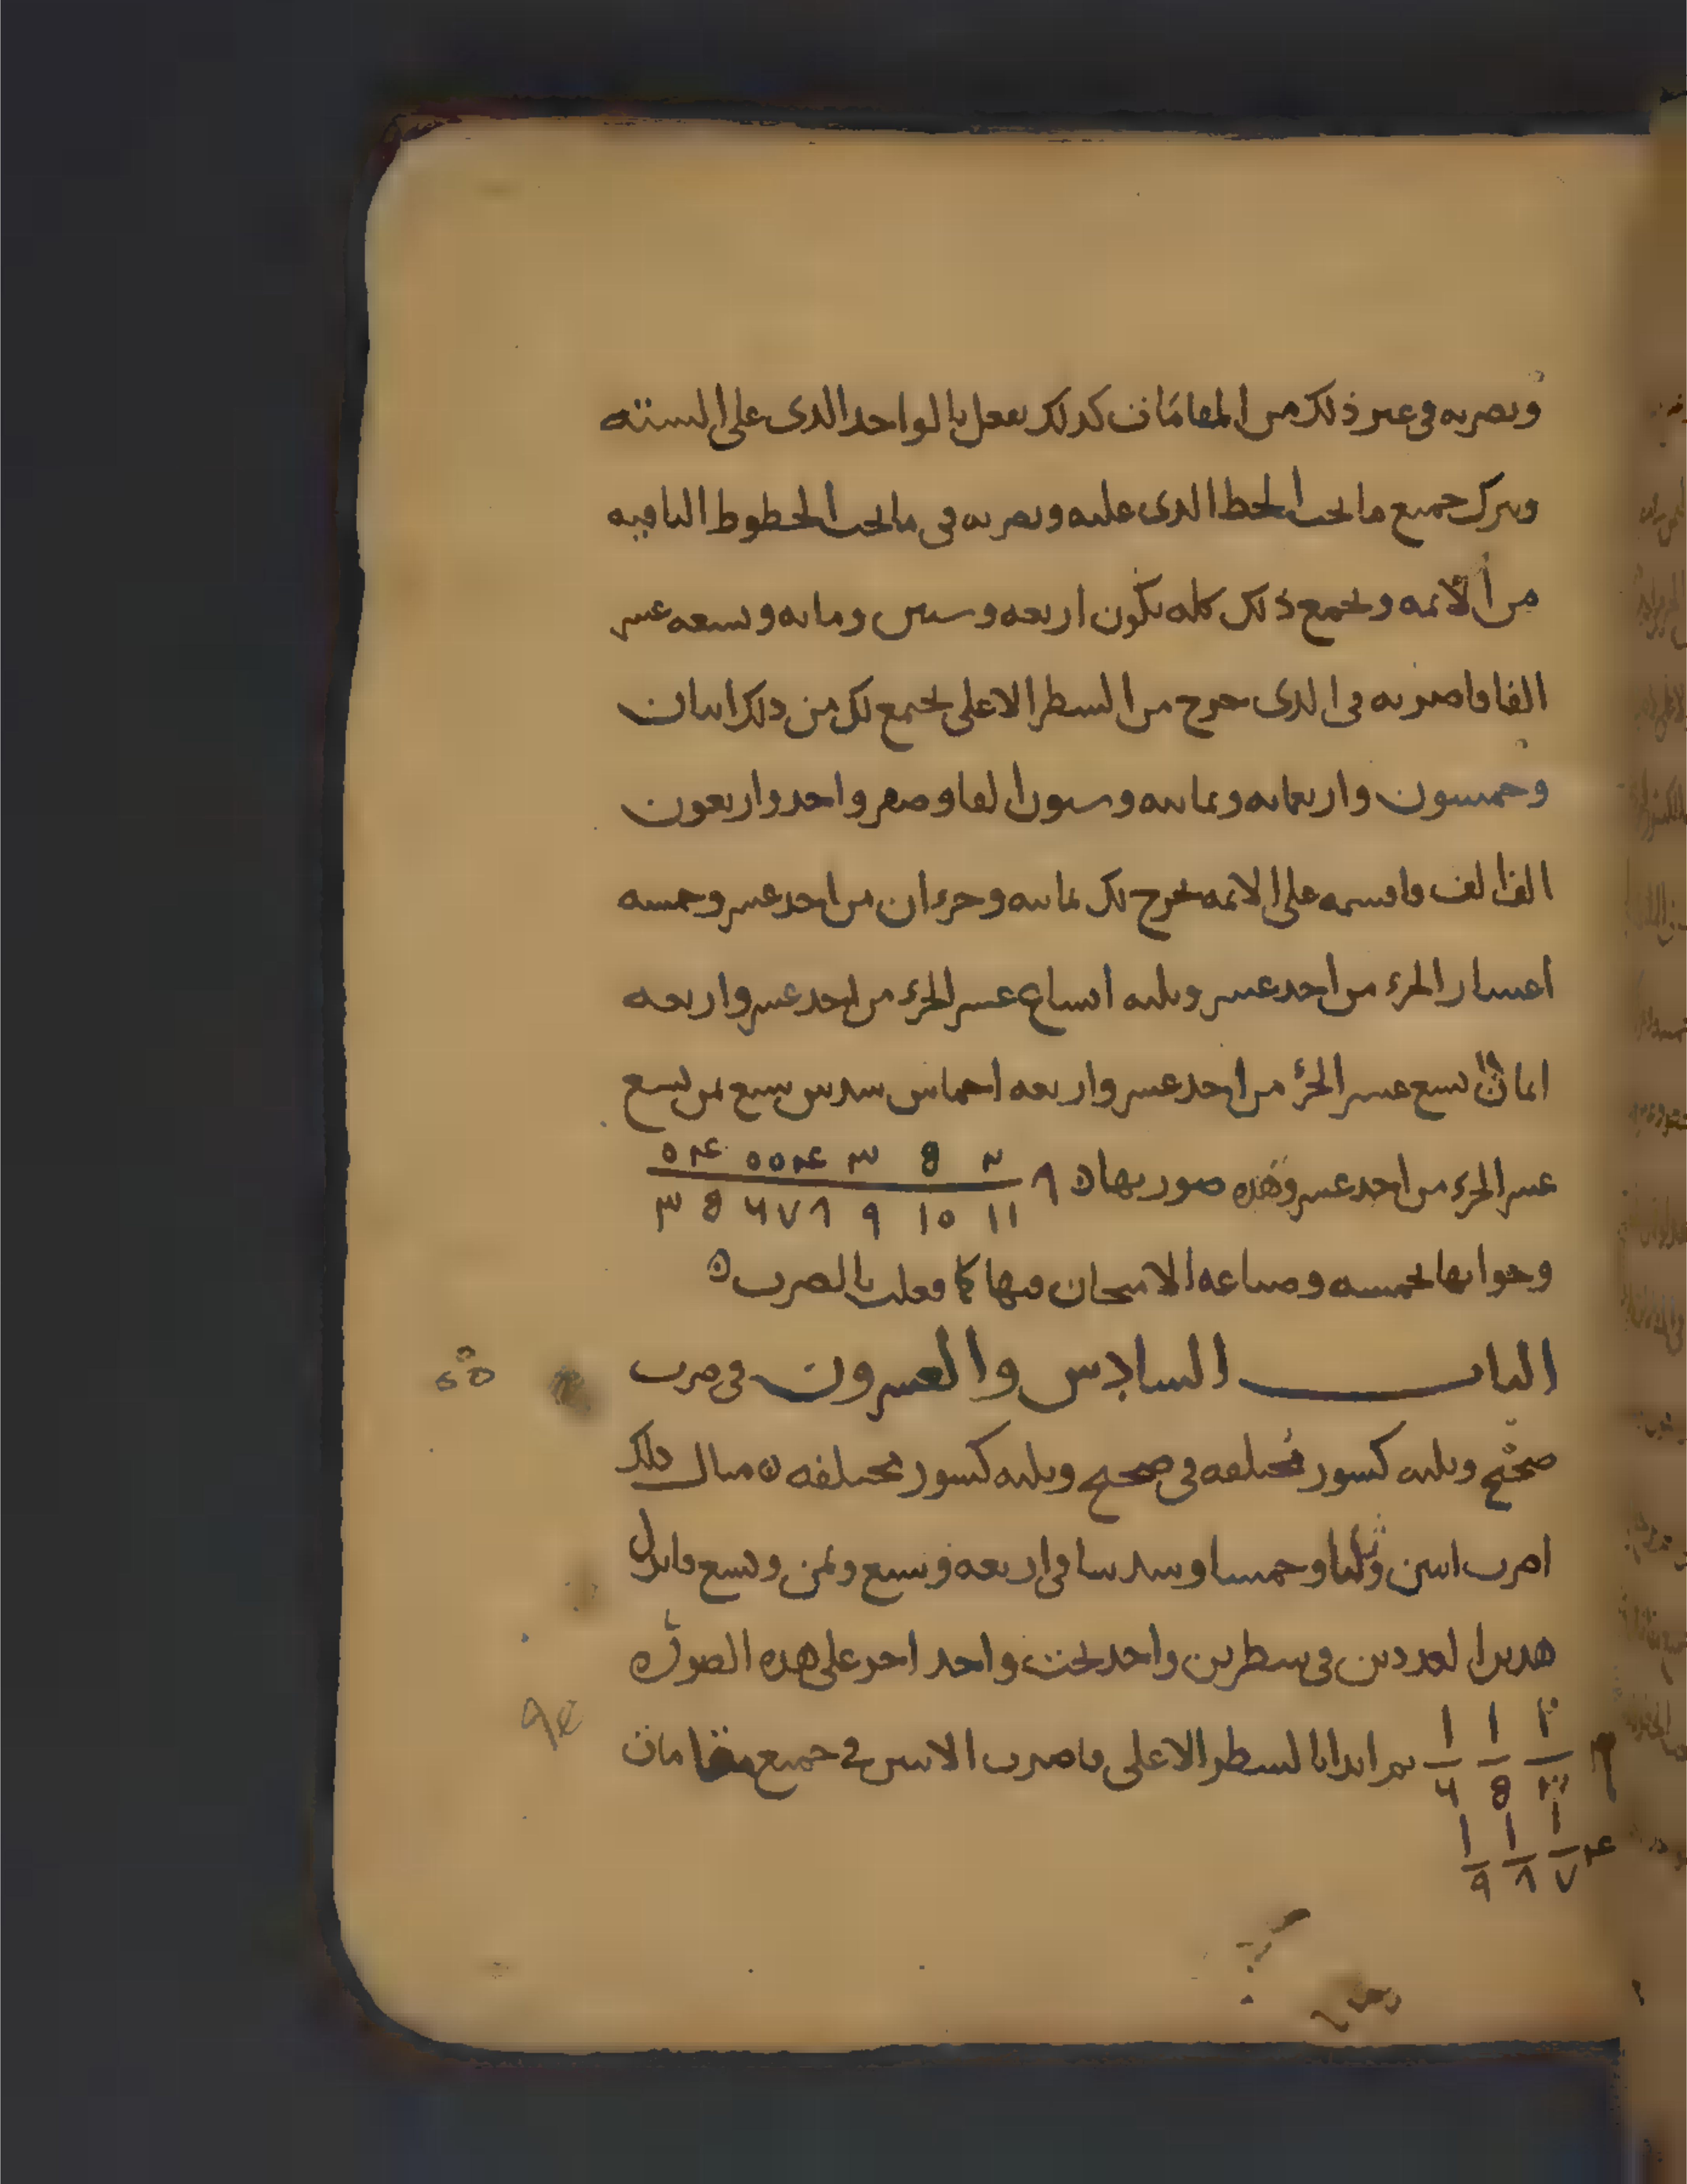 وتضربه في غير ذلك من المقامات كذلك تفعل بالواحد الذي على الستة
وتترك جميع ما تحت الخط الذي عليه وتضربه في ما تحت الخطوط الباقية
من الأئمة وتجمع ذلك كله يكون اربعة وستين ومائة وتسعة عشر
الفا فاضربه في الذي خرج من السطر الاعلى يجتمع لك من ذلك اثنان
وخمسون واربعمائة وثمانية وستون الفا وصفر واحد واربعون
الف الف فاقسمه على الائمة يخرج لك ثمانية وجزءان من احد عشر وخمسة
اعشار الجزء من احد عشر وثلثة اتساع عشر الجزء من احد عشر واربعة
اثمان تسع عشر الجزء من احد عشر واربعة اخماس سدس سبع ثمن تسع
عشر الجزء من احد عشر وهذه صورتها ٨
وجوابها بخمسة وصناعة الامتحان فيها كما فعلت بالضرب
الباب السادس والعشرون في ضرب
صحيح وثلثة كسور مختلفة في صحيح وثلثة كسور مختلفة مثال ذلك
اضرب اثنين وثلثا وخمسا وسدسا في اربعة وسبع وثمن وتسع فانزل
هذين العددين في سطرين واحد تحت واحد اخر على هذه الصورة
ثم ابدا بالسطر الاعلى فاضرب الاثنين في جميع مقامات